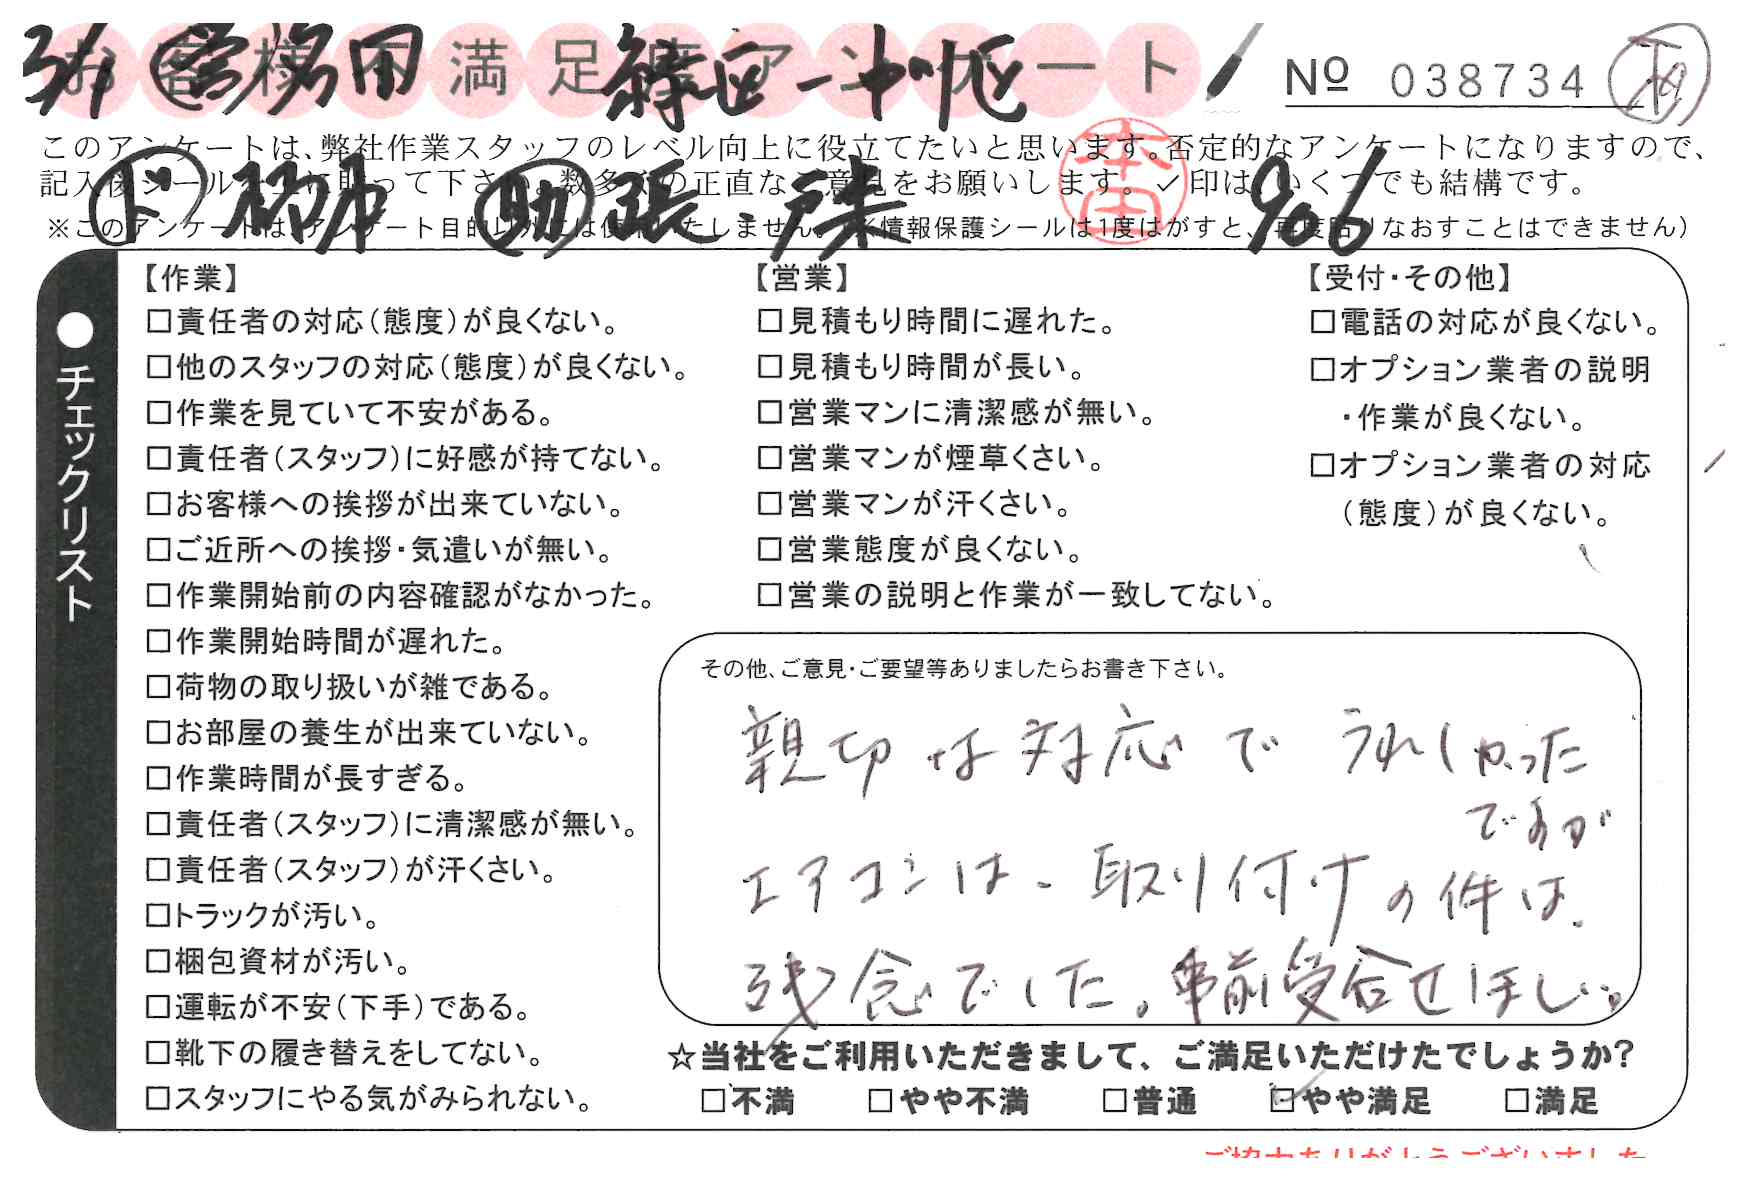 お客様不満足度アンケート
3/1 営 緑区→中川区
№ 038734
このアンケートは、弊社作業スタッフのレベル向上に役立てたいと思います。否定的なアンケートになりますので、
記入後シールを上に貼って下さい。数多くの正直なご意見をお願いします。✓印はいくつでも結構です。
ド 助 906
※このアンケートは、アンケート目的以外には使用いたしません。(※情報保護シールは1度はがすと、再度貼りなおすことはできません)
●チェックリスト
【作業】
□責任者の対応(態度)が良くない。
□他のスタッフの対応(態度)が良くない。
□作業を見ていて不安がある。
□責任者(スタッフ)に好感が持てない。
□お客様への挨拶が出来ていない。
□ご近所への挨拶・気遣いが無い。
□作業開始前の内容確認がなかった。
□作業開始時間が遅れた。
□荷物の取り扱いが雑である。
□お部屋の養生が出来ていない。
□作業時間が長すぎる。
□責任者(スタッフ)に清潔感が無い。
□責任者(スタッフ)が汗くさい。
□トラックが汚い。
□梱包資材が汚い。
□運転が不安(下手)である。
□靴下の履き替えをしてない。
□スタッフにやる気がみられない。
【営業】
□見積もり時間に遅れた。
□見積もり時間が長い。
□営業マンに清潔感が無い。
□営業マンが煙草くさい。
□営業マンが汗くさい。
□営業態度が良くない。
□営業の説明と作業が一致してない。
【受付・その他】
□電話の対応が良くない。
□オプション業者の説明
・作業が良くない。
□オプション業者の対応
(態度)が良くない。
その他、ご意見・ご要望等ありましたらお書き下さい。
親切な対応でうれしかった
ですが
エアコンは、取り付けの件は、
残念でした。事前受合せほしい。
☆当社をご利用いただきまして、ご満足いただけたでしょうか?
□不満 □やや不満 □普通 ☑やや満足 □満足
ご協力ありがとうございました